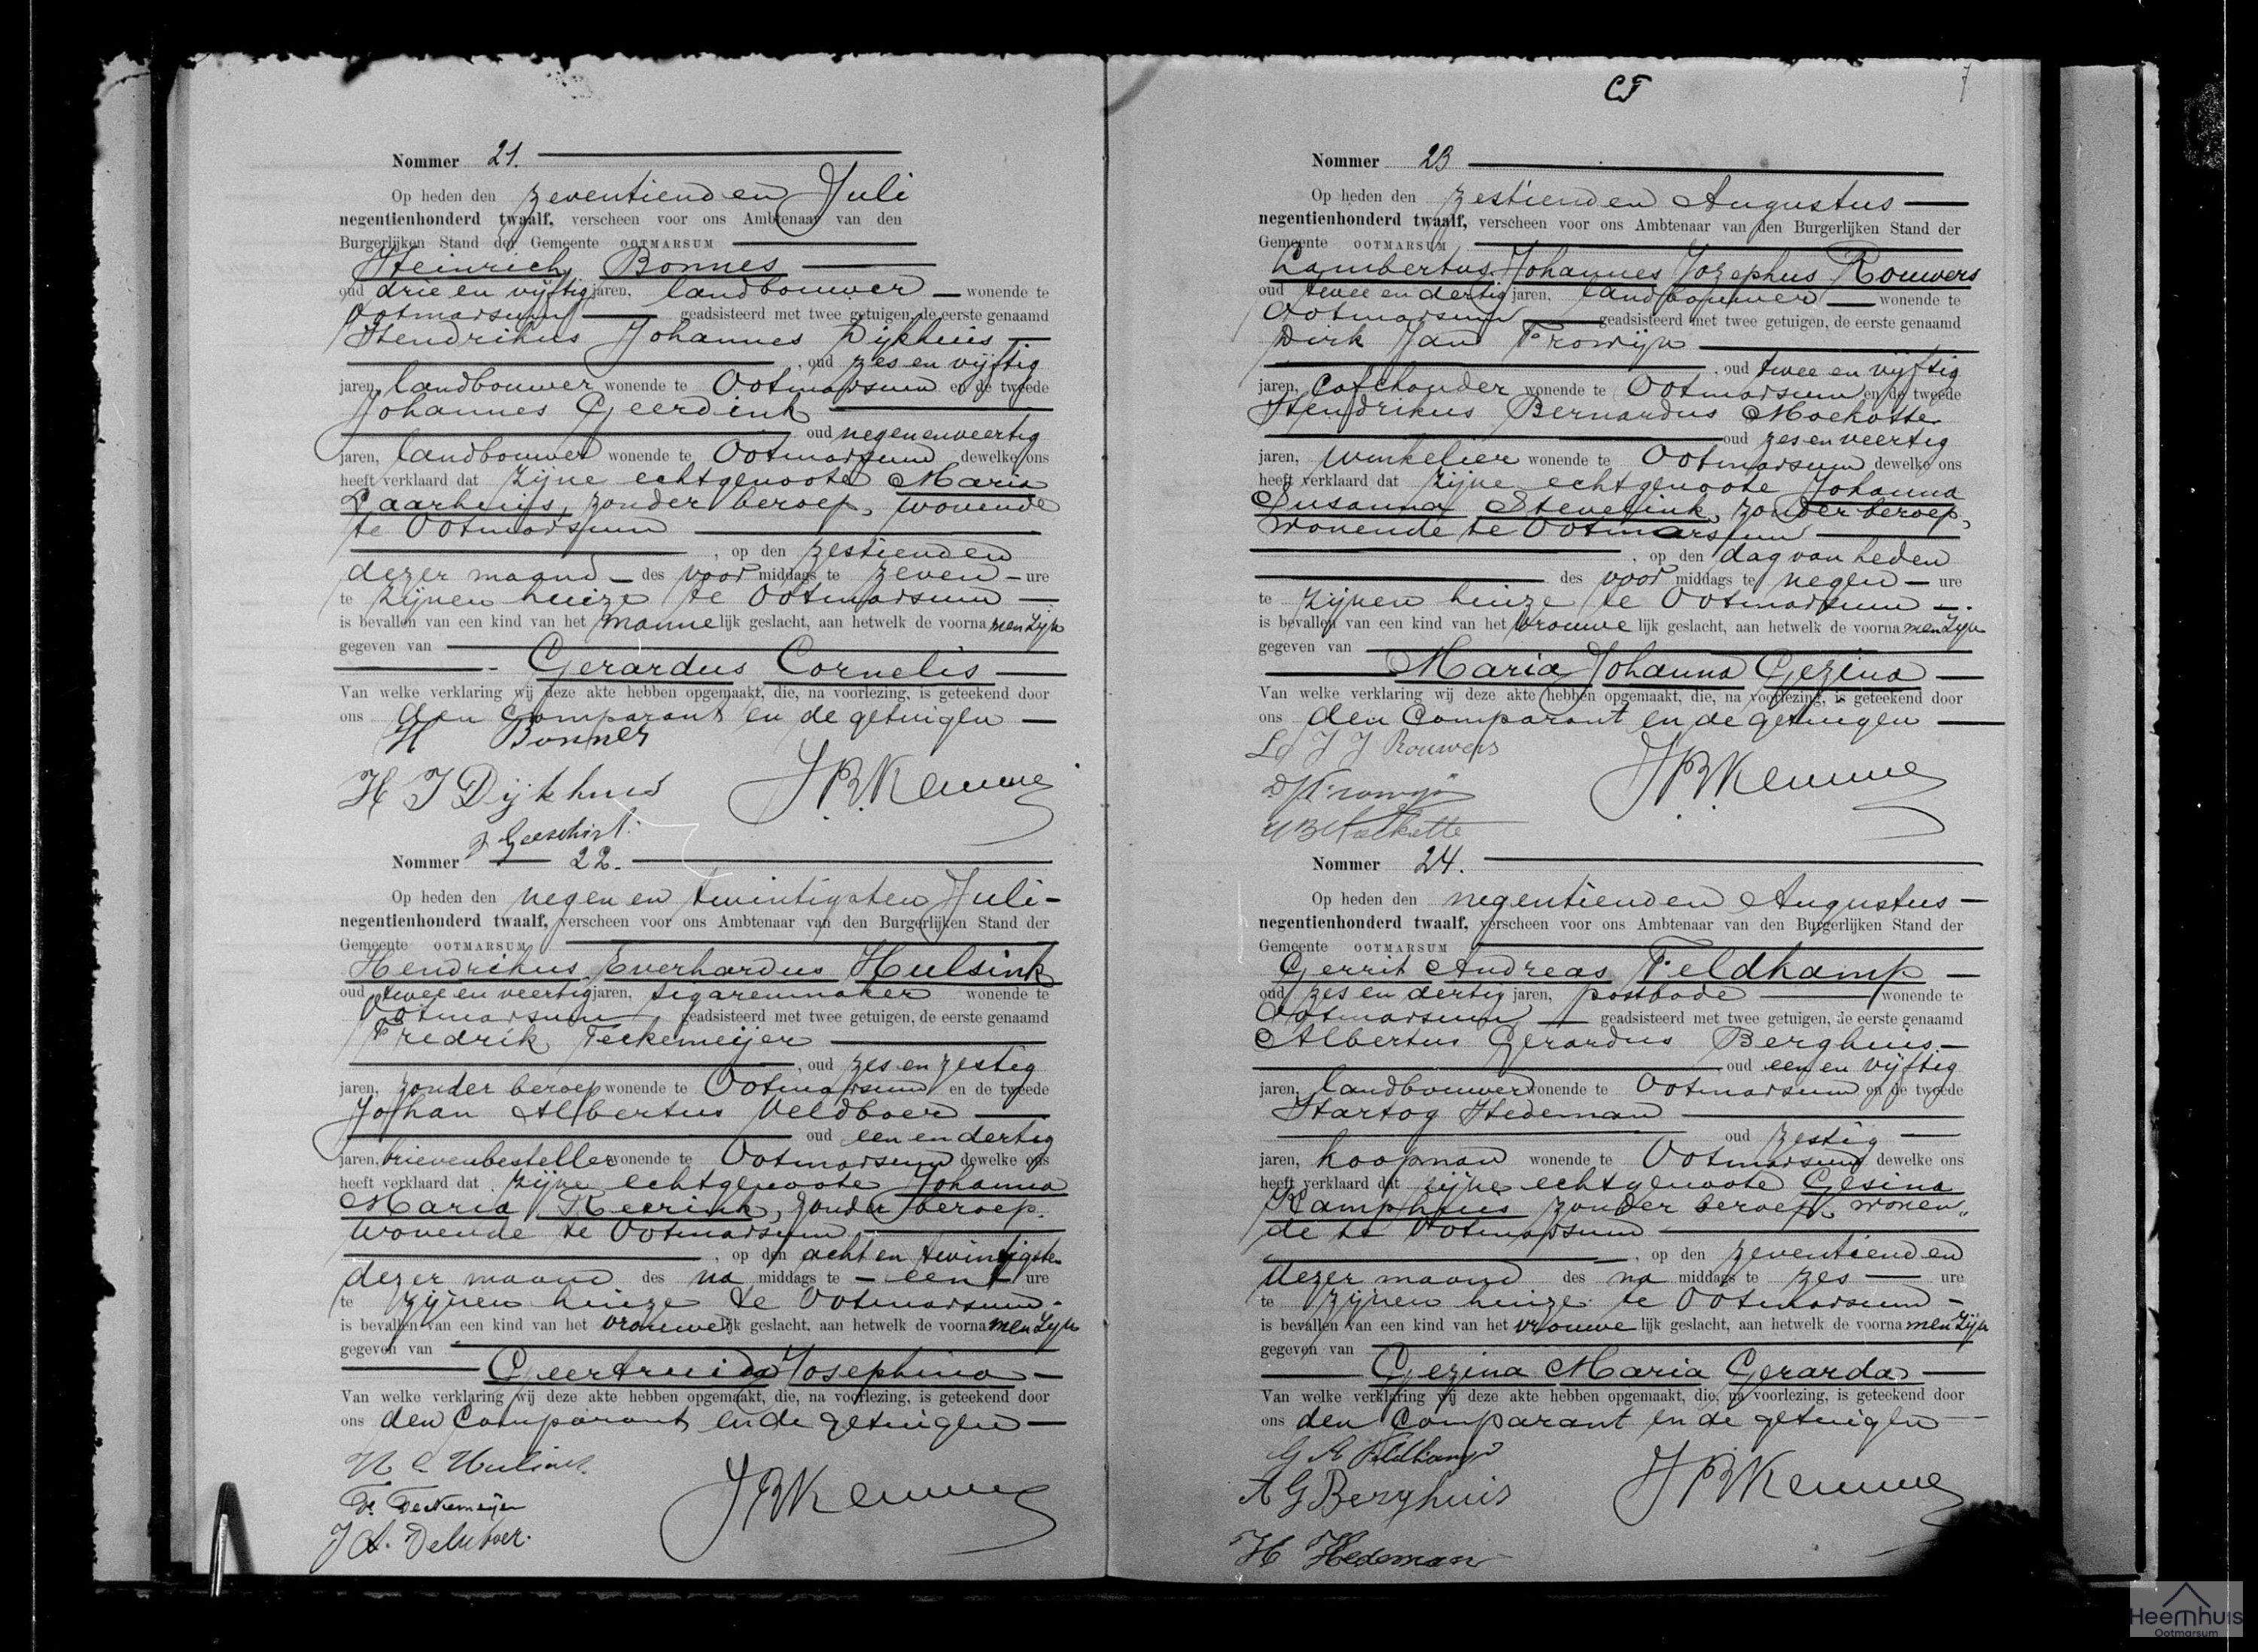 Nommer 21.
Op heden den zeventienden Juli
negentienhonderd twaalf, verscheen voor ons Ambtenaar van den
Burgerlijken Stand der Gemeente OOTMARSUM
Heinrich Bonnes
oud drie en vijftig jaren, landbouwer wonende te
Ootmarsum geadsisteerd met twee getuigen, de eerste genaamd
Hendrikus Johannes Dijkhuis
, oud zes en vijftig
jaren, landbouwer wonende te Ootmarsum en de tweede
Johannes Geerdink
oud negen en veertig
jaren, landbouwer wonende te Ootmarsum dewelke ons
heeft verklaard dat zijne echtgenoote Maria
Laarhuis, zonder beroep, wonende
te Ootmarsum
, op den zestienden
dezer maand des voor middags te zeven ure
te zijnen huize te Ootmarsum
is bevallen van een kind van het mannelijk geslacht, aan hetwelk de voornamen zijn
gegeven van
Gerardus Cornelis
Van welke verklaring wij deze akte hebben opgemaakt, die, na voorlezing, is geteekend door
ons den comparant en de getuigen
H Bonnes
H J Dijkhuis JBKemme
Nommer 22.
Op heden den negen en twintigsten Juli
negentienhonderd twaalf, verscheen voor ons Ambtenaar van den Burgerlijken Stand der
Gemeente OOTMARSUM
Hendrikus Everhardus Hulsink
oud twee en veertig jaren, sigarenmaker wonende te
Ootmarsum geadsisteerd met twee getuigen, de eerste genaamd
Fredrik Teckemeijer
, oud zes en zestig
jaren, zonder beroep wonende te Ootmarsum en de tweede
Johan Albertus Veldboer
oud een en dertig
jaren, brievenbesteller wonende te Ootmarsum dewelke ons
heeft verklaard dat zijne echtgenoote Johanna
Maria Reerink, zonder beroep.
wonende te Ootmarsum
, op den acht en twintigsten
dezer maand des na middags te een ure
te zijnen huize te Ootmarsum
is bevallen van een kind van het vrouwelijk geslacht, aan hetwelk de voornamen zijn
gegeven van
Geertruida Josephina
Van welke verklaring wij deze akte hebben opgemaakt, die, na voorlezing, is geteekend door
ons den comparant en de getuigen
H E Hulsink
Fr. Teckemeijer JBKemme
J A. Veldboer.
Nommer 23
Op heden den zestienden Augustus
negentienhonderd twaalf, verscheen voor ons Ambtenaar van den Burgerlijken Stand der
Gemeente OOTMARSUM
Lambertus Johannes Jozephus Rouwers
oud twee en dertig jaren, landbouwer wonende te
Ootmarsum geadsisteerd met twee getuigen, de eerste genaamd
Dirk Jan Frowijn
. oud twee en vijftig
jaren, Cafehouder wonende te Ootmarsum en de tweede
Hendrikus Bernardus Moekotte
oud zes en veertig
jaren, winkelier wonende te Ootmarsum dewelke ons
heeft verklaard dat zijne echtgenoote Johanna
Susanna Stevelink, zonder beroep,
wonende te Ootmarsum
, op den dag van heden
des voor middags te negen ure
te zijnen huize te Ootmarsum
is bevallen van een kind van het vrouwelijk geslacht, aan hetwelk de voornamen zijn
gegeven van
Maria Johanna Gezina
Van welke verklaring wij deze akte hebben opgemaakt, die, na voorlezing, is geteekend door
ons den comparant en de getuigen
L J J Rouwers
DJFrowijn JBKemme
HBMoekotte
Nommer 24.
Op heden den negentienden Augustus
negentienhonderd twaalf, verscheen voor ons Ambtenaar van den Burgerlijken Stand der
Gemeente OOTMARSUM
Gerrit Andreas Feldkamp
oud zes en dertig jaren, postbode wonende te
Ootmarsum geadsisteerd met twee getuigen, de eerste genaamd
Albertus Gerardus Berghuis
oud een en vijftig
jaren, landbouwer wonende te Ootmarsum en de tweede
Hartog Hedeman
oud zestig
jaren, koopman wonende te Ootmarsum dewelke ons
heeft verklaard dat zijne echtgenoote Gesina
Kamphuis zonder beroep, wonen„
de te Ootmarsum
, op den zeventienden
dezer maand des na middags te zes ure
te zijnen huize te Ootmarsum
is bevallen van een kind van het vrouwelijk geslacht, aan hetwelk de voornamen zijn
gegeven van
Gezina Maria Gerarda
Van welke verklaring wij deze akte hebben opgemaakt, die, na voorlezing, is geteekend door
ons den comparant en de getuigen
G A Feldkamp
A G Berghuis JBKemme
H Hedeman
Heemhuis
Ootmarsum